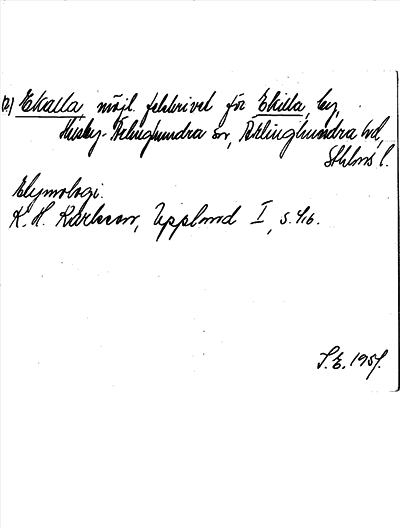 (?) Ekalla, möjl. felskrivet för Ekilla, by,
Husby-Ärlinghundra sn, Ärlinghundra hd,
Sthlms l.
Etymologi.
K. H. Karlsson, Uppland I, s. 416.
S. E. 1951.